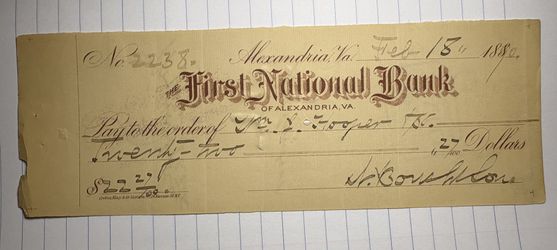 No. 2238. Alexandria, Va. Feb 18" 1890.
THE First National Bank
OF ALEXANDRIA, VA.
Pay to the order of Wm. Hooper
Twenty-two 27/100 Dollars
$22 27/100